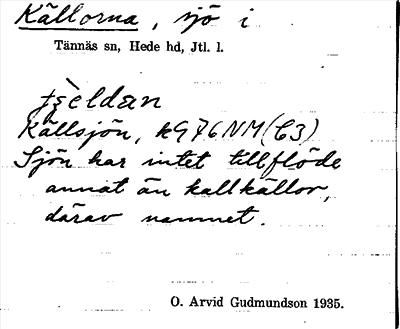 Källorna, sjö i
Tännäs sn, Hede hd, Jtl. l.
Källsjön, kG76NM(C3)
Sjön har intet tillflöde
annat än kallkällor,
därav namnet.
O. Arvid Gudmundson 1935.